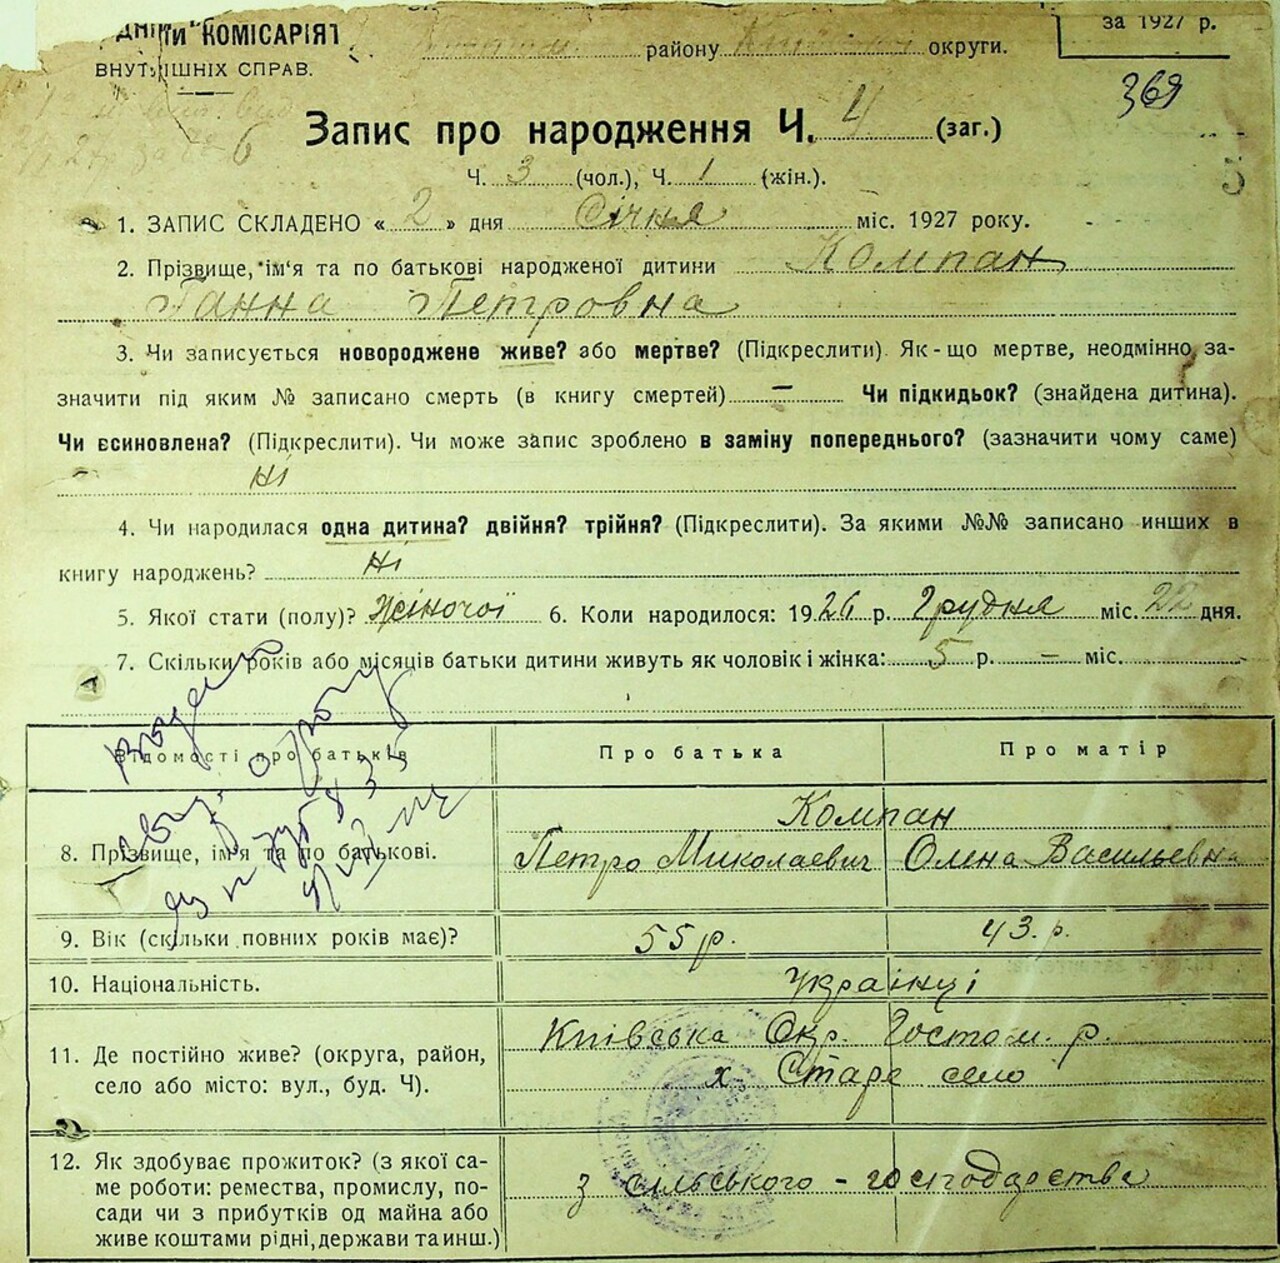 КОМІСАРІЯТ
ВНУТРІШНІХ СПРАВ.
району округи.
за 1927 р.
369
Запис про народження Ч. 4 (заг.)
Ч. 3 (чол.), Ч. 1 (жін.).
1. ЗАПИС СКЛАДЕНО « 2 » дня Січня міс. 1927 року.
2. Прізвище, ім'я та по батькові народженої дитини Компан
Ганна Петровна
3. Чи записується новороджене живе? або мертве? (Підкреслити). Як-що мертве, неодмінно за-
значити під яким № записано смерть (в книгу смертей) — Чи підкидьок? (знайдена дитина).
Чи єсиновлена? (Підкреслити). Чи може запис зроблено в заміну попереднього? (зазначити чому саме)
Ні
4. Чи народилася одна дитина? двійня? трійня? (Підкреслити). За якими №№ записано инших в
книгу народжень? Ні
5. Якої стати (полу)? Жіночої 6. Коли народилося: 1926 р. Грудня міс. 22 дня.
7. Скільки років або місяців батьки дитини живуть як чоловік і жінка: 5 р. — міс.
Відомості про батьків Про батька Про матір
Компан
8. Прізвище, ім'я та по батькові. Петро Миколаевич Олена Васильевна
9. Вік (скільки повних років має)? 55 р. 43. р.
10. Національність. Українці
11. Де постійно живе? (округа, район, Київська Окр. Гостом. р.
село або місто: вул., буд. Ч). х. Старе село
12. Як здобуває прожиток? (з якої са-
ме роботи: ремества, промислу, по- з сільського - господарства
сади чи з прибутків од майна або
живе коштами рідні, держави та инш.)